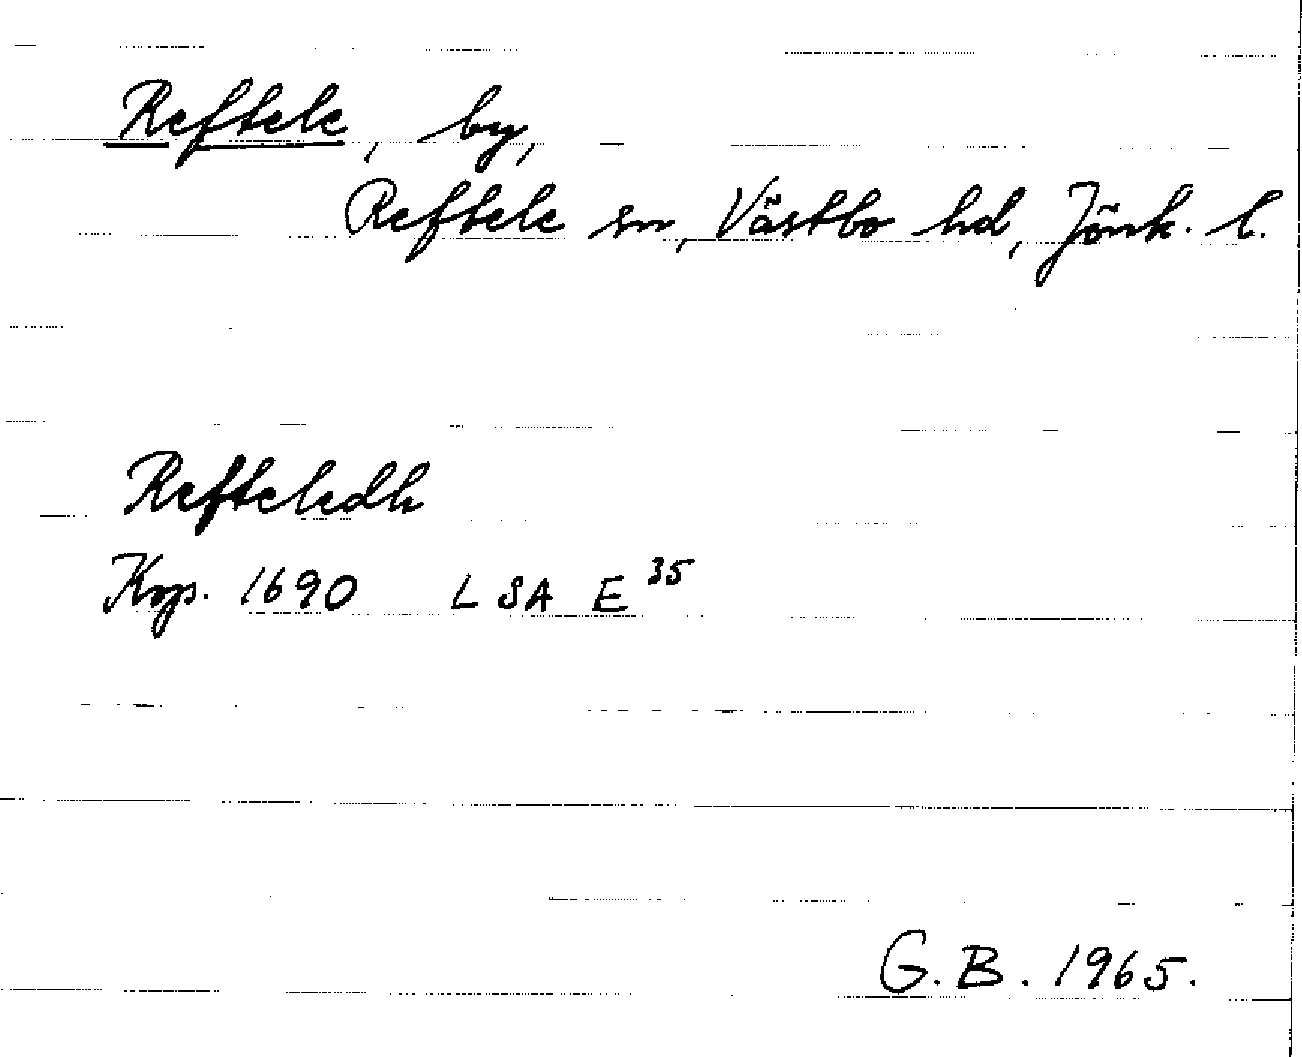 Reftele, by,
Reftele sn, Västbo hd, Jönk. l.
Refteledh
Kop. 1690 LSA E 35
G.B. 1965.